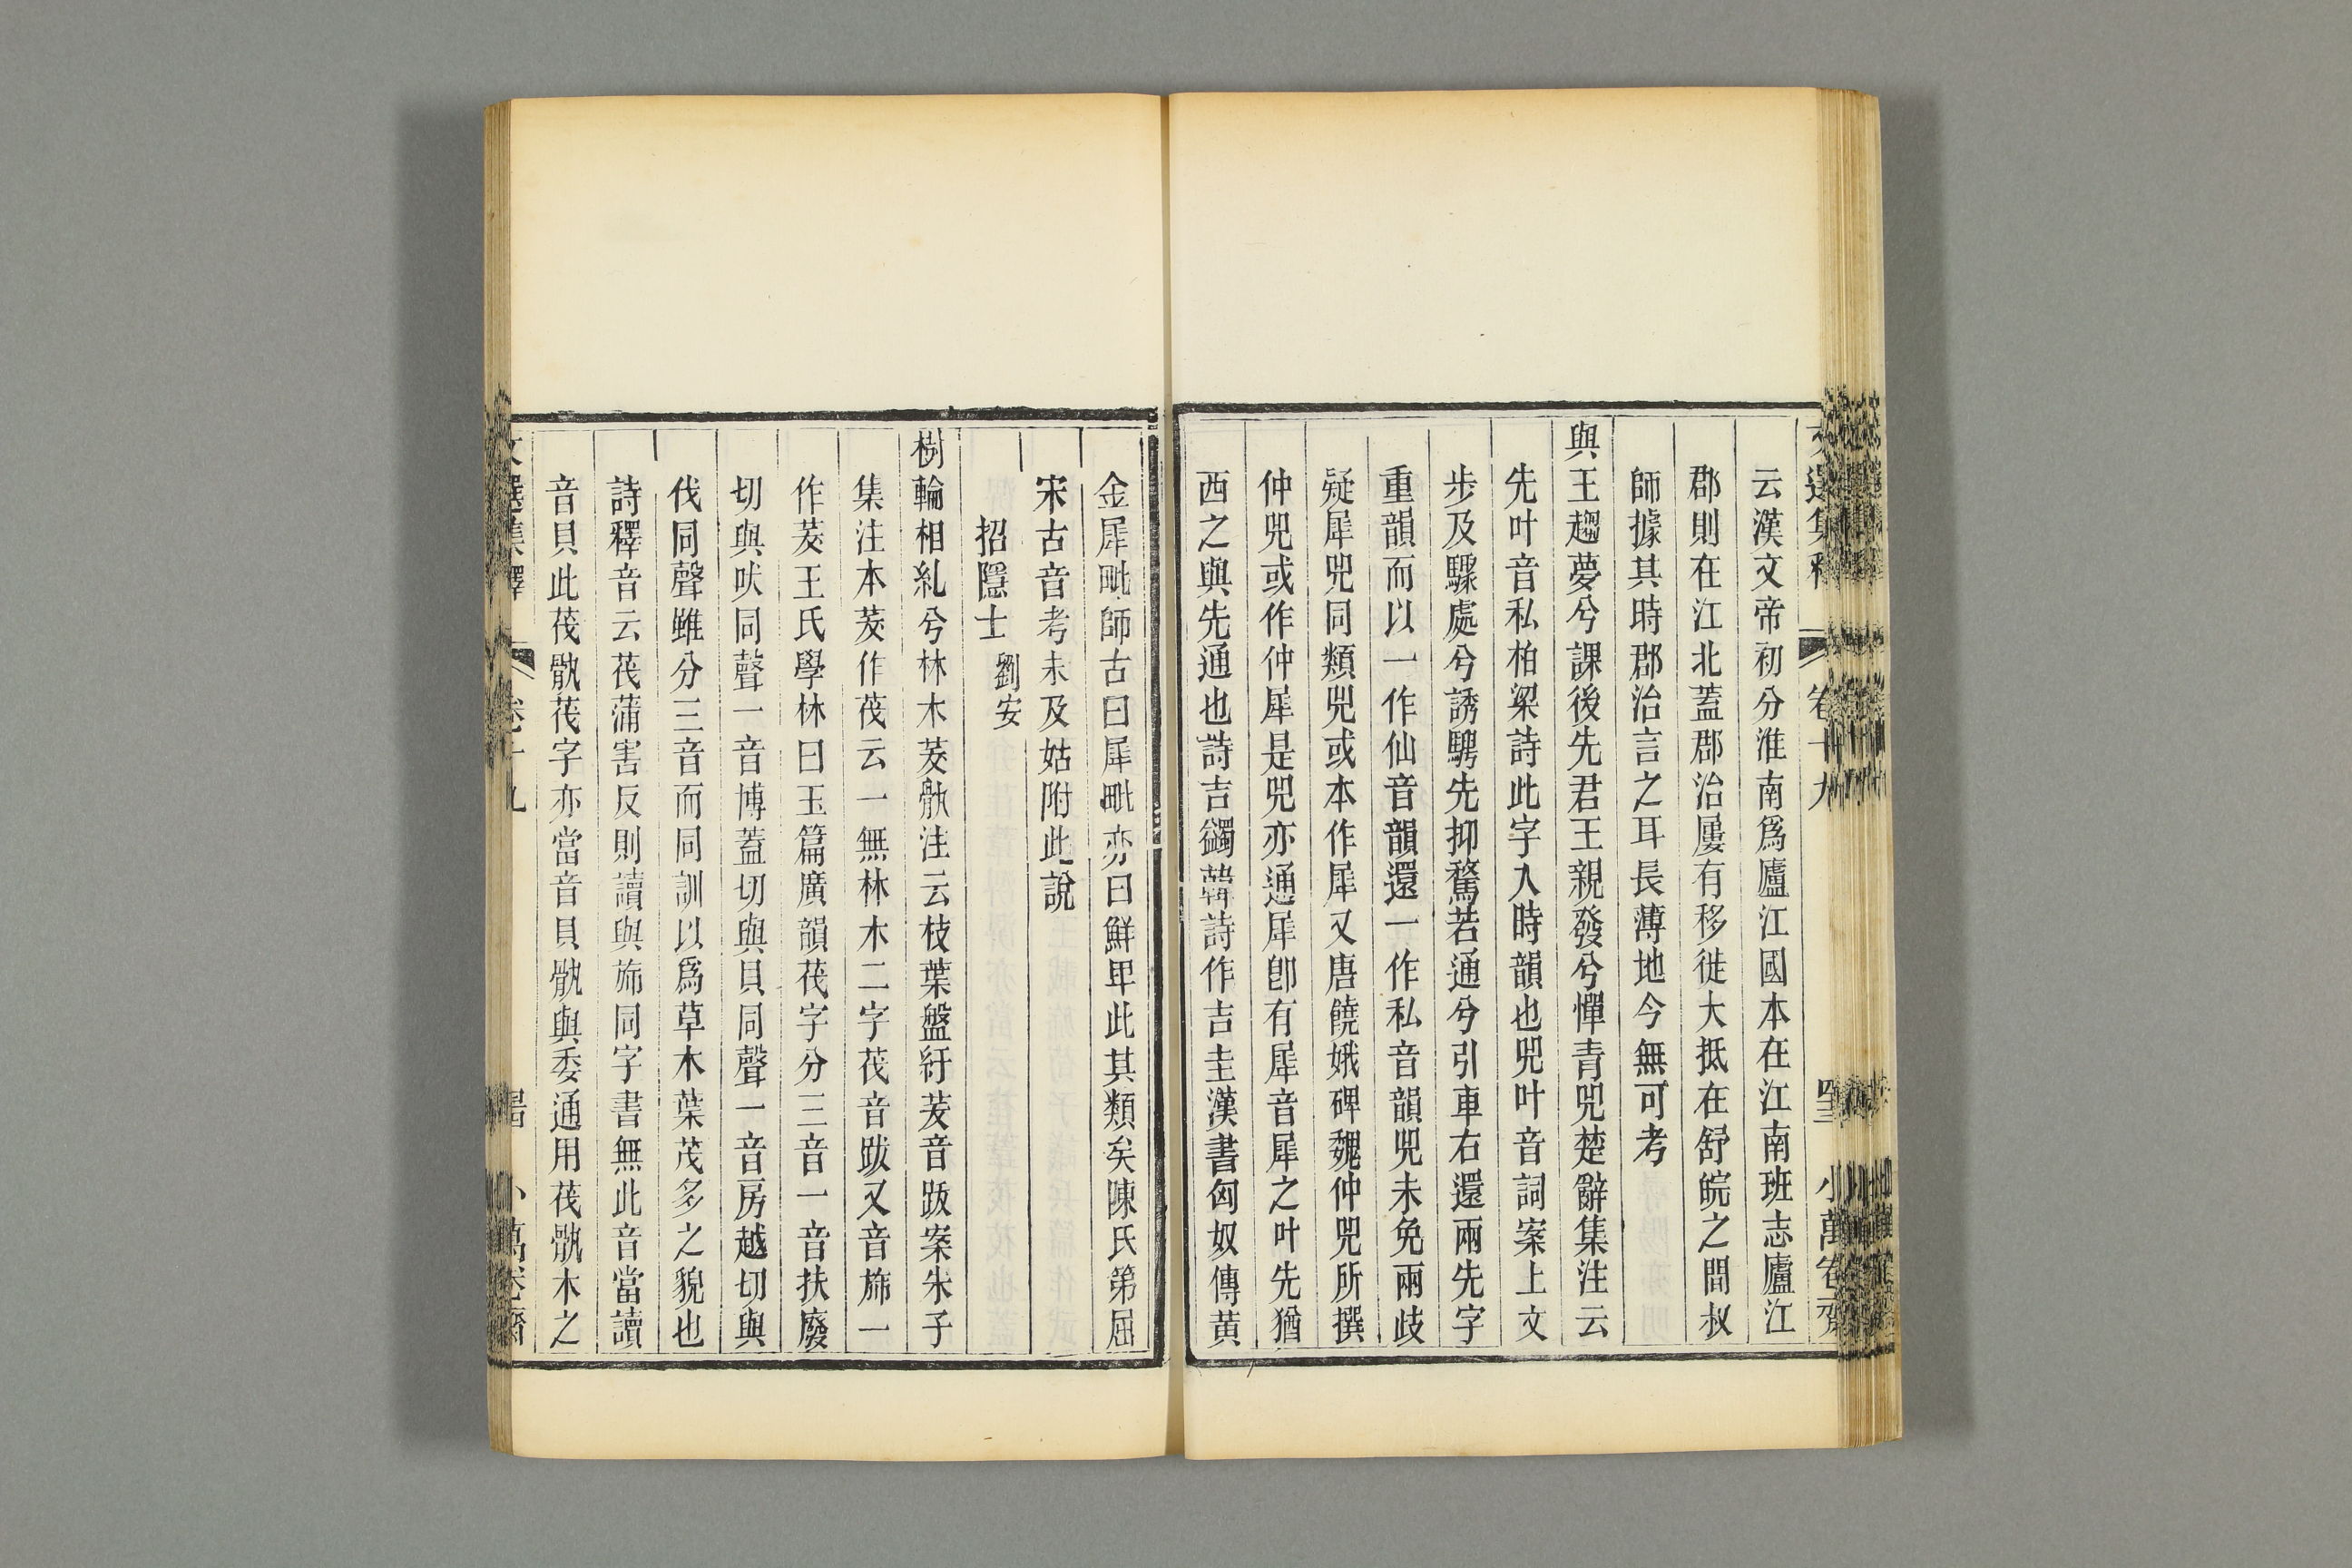 云漢文帝初分淮南爲廬江國本在江南班志廬江
郡則在江北蓋郡治屢有移徙大抵在舒皖之間叔
師據其時郡治言之耳長薄地今無可考
與王趨夢兮課後先君王親發兮憚青兕楚辭集注云
先叶音私柏梁詩此字入時韻也兕叶音詞案上文
步及驟處兮誘騁先抑騖若通兮引車右還兩先字
重韻而以一作仙音韻還一作私音韻兕未免兩歧
疑犀兕同類兕或本作犀又唐饒娥碑魏仲兕所撰
仲兕或作仲犀是兕亦通犀卽有犀音犀之叶先猶
西之與先通也詩吉蠲韓詩作吉圭漢書匈奴傳黃
金犀毗師古曰犀毗亦曰鮮卑此其類矣陳氏第屈
宋古音考未及姑附此說
招隱士 劉安
樹輪相糺兮林木茇骫注云枝葉盤紆茇音跋案朱子
集注本茇作茷云一無林木二字茷音跋又音旆一
作茇王氏學林曰玉篇廣韻茷字分三音一音扶廢
切與吠同聲一音博蓋切與貝同聲一音房越切與
伐同聲雖分三音而同訓以爲草木葉茂多之貌也
詩釋音云茷蒲害反則讀與旆同字書無此音當讀
音貝此茷骫茷字亦當音貝骫與委通用茷骫木之